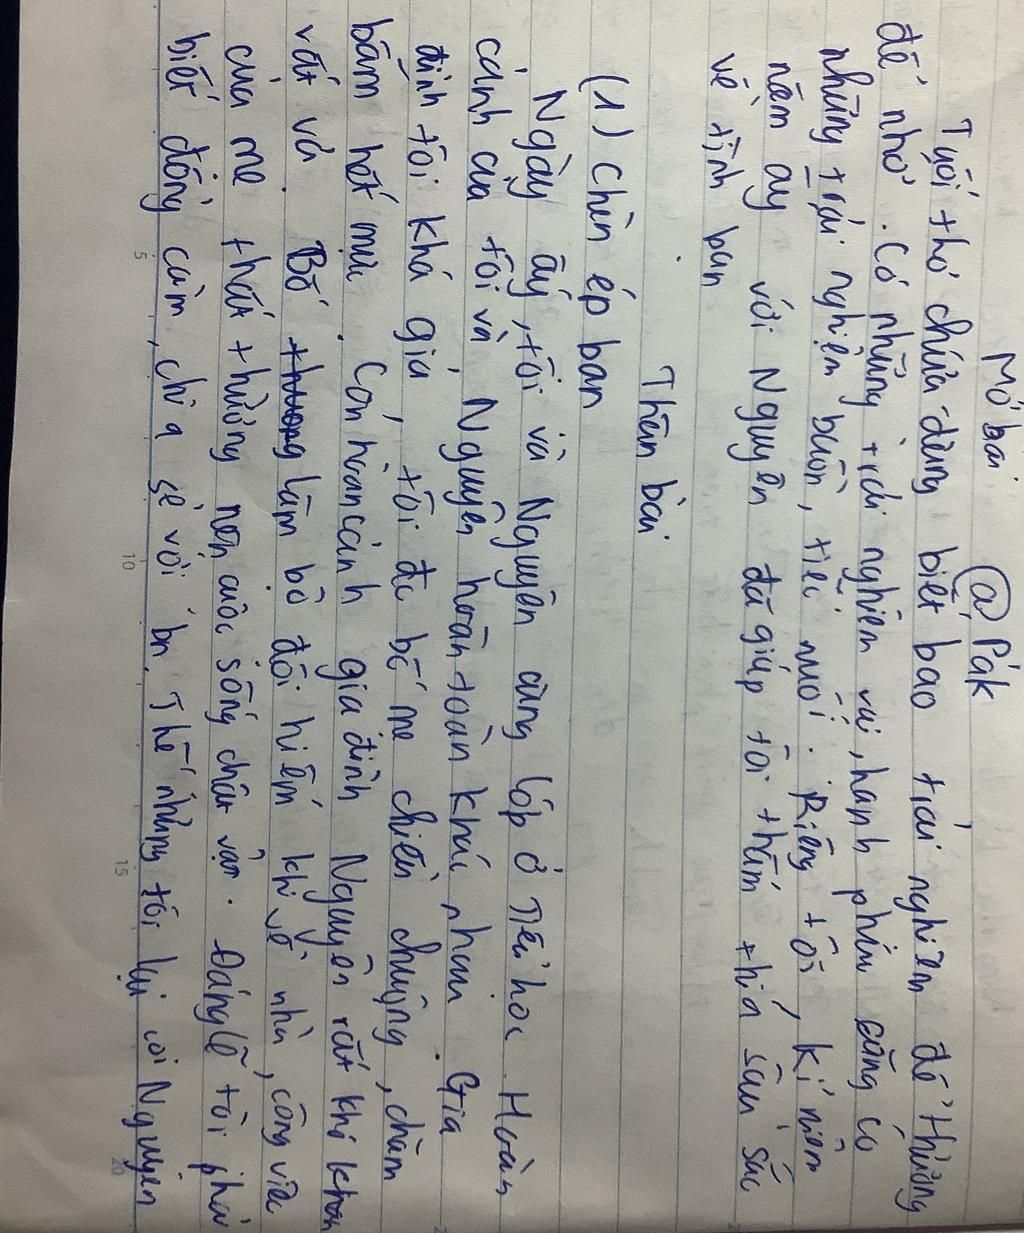 @ Pák
Mở bài
Tuổi thơ chứa đựng biết bao trải nghiệm để thương
để nhớ. Có những trải nghiệm vui, hạnh phúc cũng có
những trải nghiệm buồn, tiếc nuối. Riêng tôi, kỉ niệm
năm ấy với Nguyên đã giúp tôi thấm thía sâu sắc
về tình bạn
Thân bài
(1) chèn ép bạn
Ngày ấy, tôi và Nguyên cùng lớp ở Tiểu học. Hoàn
cảnh của tôi và Nguyên hoàn toàn khác nhau. Gia
đình tôi khá giả, tôi đc bố mẹ chiều chuộng, chăm
bẵm hết mực. Còn hoàn cảnh gia đình Nguyên rất khó khăn
vất vả. Bố làm bộ đội hiếm khi về nhà, công việc
của mẹ thất thường nên cuộc sống chật vật. Đáng lẽ tôi phải
biết đồng cảm, chia sẻ với bn. Thế nhưng tôi lại coi Nguyên